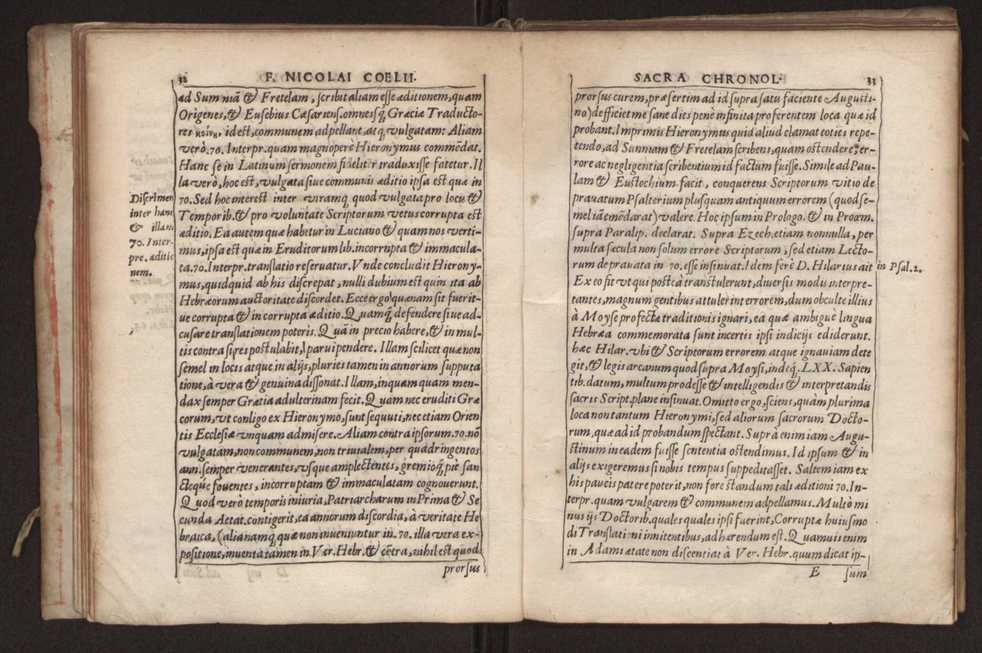 32 F. NICOLAI COELII.
ad Sunniã & Fretelam, scribit aliam esse æditionem, quam
Origenes, & Eusebius Cæsariens. omnesq́; Græciæ Traducto-
res κοίνην, id est, communem adpellant, atq; vulgatam: Aliam
verò. 70. Interpr. quam magnoperè Hieronymus commẽdat.
Hanc se in Latinum sermonem fideliter traduxisse fatetur. Il
la verò, hoc est, vulgata siue communis æditio ipsa est quæ in
70. Sed hoc interest inter vtramq; quod vulgata pro locis &
Temporib. & pro voluntate Scriptorum vetus corrupta est
æditio. Ea autem quæ habetur in Luciavo & quam nos verti-
mus, ipsa est quæ in Eruditorum lib. incorrupta & immacula-
ta. 70. Interpr. translatio reseruatur. Vnde concludit Hierony-
mus, quidquid ab his discrepat, nulli dubium est quin ita ab
Hebræorum auctoritate discordet. Ecce ergo quænam sit fuerit-
ue corrupta & incorrupta æditio. Quamq́; defendere siue ad-
cusare translationem poteris. Quã in precio habere, & in mul-
tis contra si (res postulabit,) parui pendere. Illam scilicet quæ non
semel in locis atque in alijs, pluries tamen in annorum supputa
tione, à vera & genuina dissonat. Illam, inquam quam men-
dax semper Grætia adulterinam fecit. Quam nec eruditi Græ
corum, vt conligo ex Hieronymo, sunt sequuti, nec etiam Orien
tis Ecclesiæ vnquam admisere. Aliam contra ipsorum. 70. nõ
vulgatam, non communem, non triuialem, per quadringentos
ann. semper venerantes, vsque amplectentes, gremioq́; pie san
cteq́ue fouentes, incorruptam & immaculatam cognouerunt.
Quod verò temporis iniuria, Patriarcharum in Prima & Se
cunda Aetat. contigerit, ea annorum discordia, à veritate He
braica, (alia namq́; quæ non inueniuntur in. 70. illa vera ex-
positione, inuenta tamen in Ver. Hebr. & cẽtra, nihil est quod
prorsus
Discrimen
inter hanc
& illam
70. Inter-
pre. æditio
nem.
SACRA CHRONOL. 33
prorsus curem, præsertim ad id supra satu faciente Augusti-
no) deficiet me sane dies penè infinita proferentem loca quæ id
probant. Imprimis Hieronymus quid aliud clamat toties repe-
tendo, ad Sunniam & Fretelam scribens, quam ostendere, er-
rore ac negligentia scribentium id factum fuisse. Simile ad Pau-
lam & Eustochium facit, conquerens Scriptorum vitio de
prauatum Psalterium plusquam antiquum errorem (quod se-
mel iã emẽdarat) valere. Hoc ipsum in Prologo. & in Proœm.
supra Paralip. declarat. Supra Ezech. etiam nonnulla, per
multa sæcula non solum errore Scriptorum, sed etiam Lecto-
rum deprauata in 70. esse insinuat. Idem ferè D. Hilarius ait
Ex eo fit vt qui posteà transtulerunt, diuersis modis interpre-
tantes, magnum gentibus attulerint errorem, dum occulte illius
à Moyse profectæ traditionis ignari, ea quæ ambiguè lingua
Hebræa commemorata sunt incertis ipsi indicijs ediderunt.
hæc Hilar. vbi & Scriptorum errorem atque ignauiam dete
git, & legis arcanum quod supra Moysi, indeq́; LXX. Sapien
tib. datum, multum prodesse & intelligendis & interpretandis
sacris Script. plane insinuat. Omitto ergo, sciens, quàm plurima
loca non tantum Hieronymi, sed aliorum sacrorum Docto-
rum, quæ ad id probandum spectant. Suprà enim iam Augu-
stinum in eadem fuisse sententia ostendimus. Id ipsum & in
alijs exigeremus si nobis tempus suppeditasset. Saltem iam ex
his paucis patere poterit, non fore standum tali æditioni 70. In-
terpr. quam vulgarem & communem adpellamus. Multò mi
nus ijs Doctorib. quales quales ipsi faerint, Corruptæ huiusmo
di Translationi innitentibus, adhærendum est. Quamuis enim
in Adami ætate non discentiat à Ver. Hebr. quum dicat ip-
E sum
in Psal. 2.